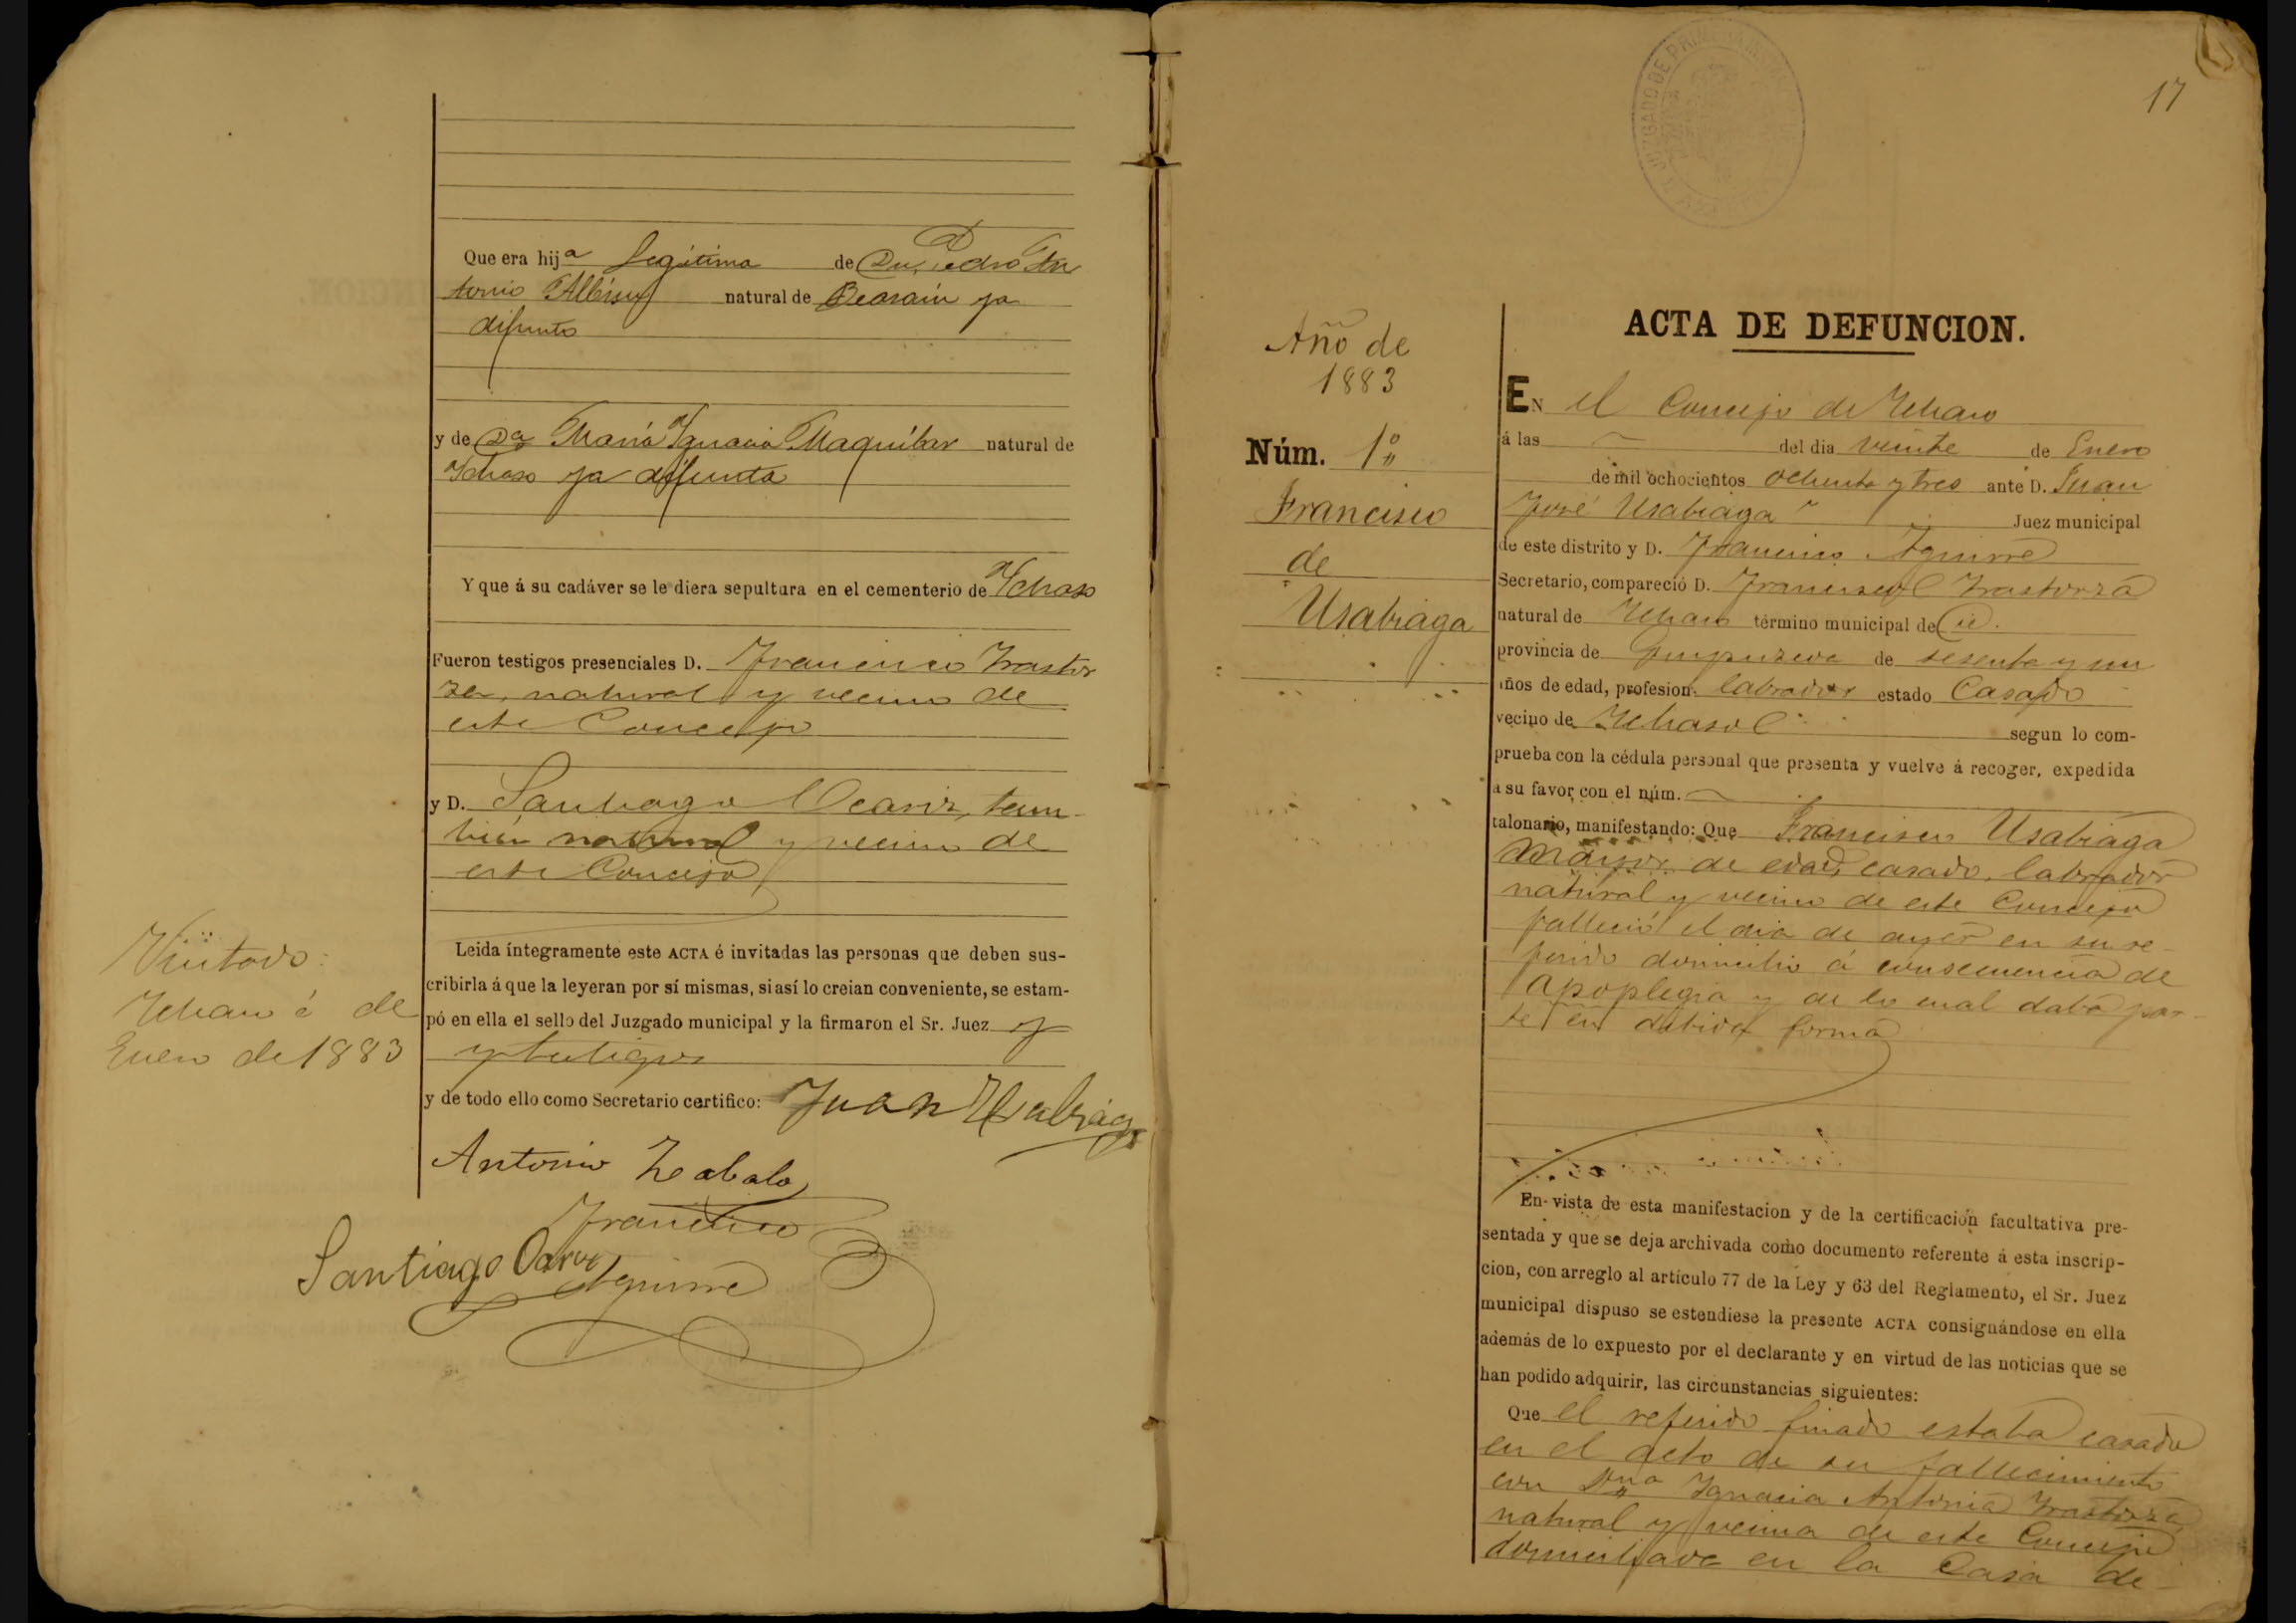 Que era hija legítima de Dn. Pedro An
tonio Albisu natural de Beasain ya
difunto
y de Da María Ygnacia Maquibar natural de
Ychaso ya difunta
Y que á su cadáver se le diera sepultura en el cementerio de Ychaso
Fueron testigos presenciales D. Francisco Irastor
za, natural y vecino de
este Concejo
y D. Santiago Ocariz, tam-
bien natural y vecino de
este Concejo
Visitado:
Ychaso á de
Enero de 1883
Leida íntegramente este ACTA é invitadas las personas que deben sus-
cribirla á que la leyeran por sí mismas, si así lo creian conveniente, se estam-
pó en ella el sello del Juzgado municipal y la firmaron el Sr. Juez y
y testigos
y de todo ello como Secretario certifico: Juan Usabiaga
Antonio Zabala
Francisco
Santiago Ocariz
Aguirre
17
JUZGADO DE PRIMERA
Año de
1883
Núm. 1º
Francisco
de
Usabiaga
ACTA DE DEFUNCION.
EN el Concejo de Ychaso
á las del dia veinte de Enero
de mil ochocientos ochenta y tres ante D. Juan
José Usabiaga Juez municipal
de este distrito y D. Francisco Aguirre
Secretario, compareció D. Francisco Irastorza
natural de Ychaso término municipal de id.
provincia de Guipuzcoa de sesenta y un
años de edad, profesion labrador estado Casado
vecino de Ychaso segun lo com-
prueba con la cédula personal que presenta y vuelve á recoger, expedida
á su favor con el núm.
talonario, manifestando: Que Francisco Usabiaga
mayor de edad, casado, labrador
natural y vecino de este Concejo
falleció el dia de ayer en su re-
ferido domicilio á consecuencia de
apoplegia y de lo cual daba par-
te en debida forma
En vista de esta manifestacion y de la certificación facultativa pre-
sentada y que se deja archivada como documento referente á esta inscrip-
cion, con arreglo al artículo 77 de la Ley y 63 del Reglamento, el Sr. Juez
municipal dispuso se estendiese la presente ACTA consignándose en ella
además de lo expuesto por el declarante y en virtud de las noticias que se
han podido adquirir, las circunstancias siguientes:
Que el referido finado estaba casado
en el acto de su fallecimiento
con Dña Ygnacia Antonia Irastorza
natural y vecina de este Concejo
domiciliada en la Casa de